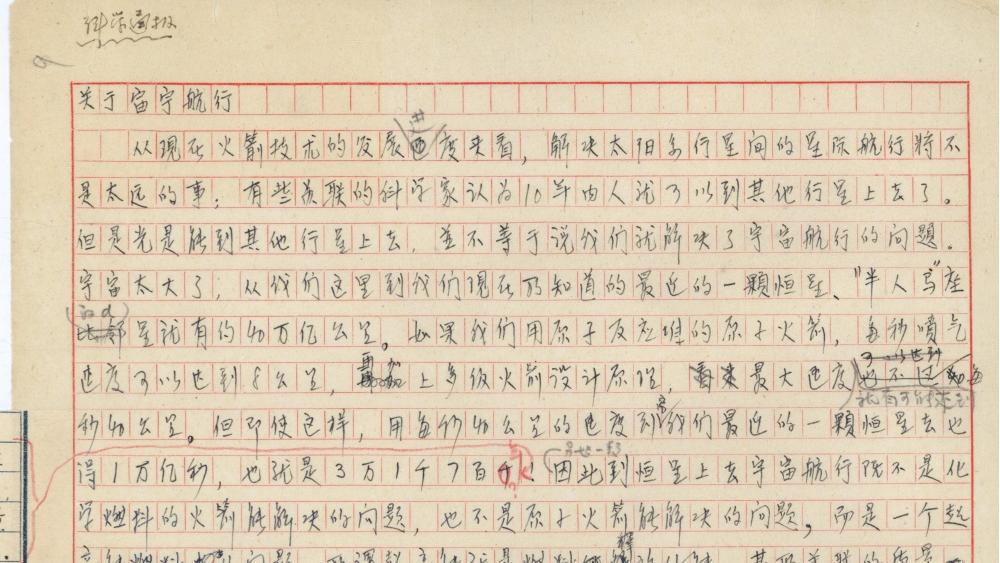 科学通报
关于宙宇航行
从现在火箭技术的发展速度来看，解决太阳系行星间的星际航行将不
是太远的事；有些苏联的科学家认为10年内人就可以到其他行星上去了。
但是光是能到其他行星上去，并不等于说我们就解决了宇宙航行的问题。
宇宙太大了；从我们这里到我们现在所知道的最近的一颗恒星、“半人马”座
的α
星就有约40万亿公里。如果我们用原子反应堆的原子火箭，每秒喷气
可以达到
速度可以达到8公里，再加上多级火箭设计原理，最大速度也不过如每
就有可能达到
秒40公里。但即使这样，用每秒40公里的速度到我们最近的一颗恒星去也
得1万亿秒，也就是3万1千7百年！因此到恒星上去宇宙航行既不是化
学燃料的火箭能解决的问题，也不是原子火箭能解决的问题，而是一个超